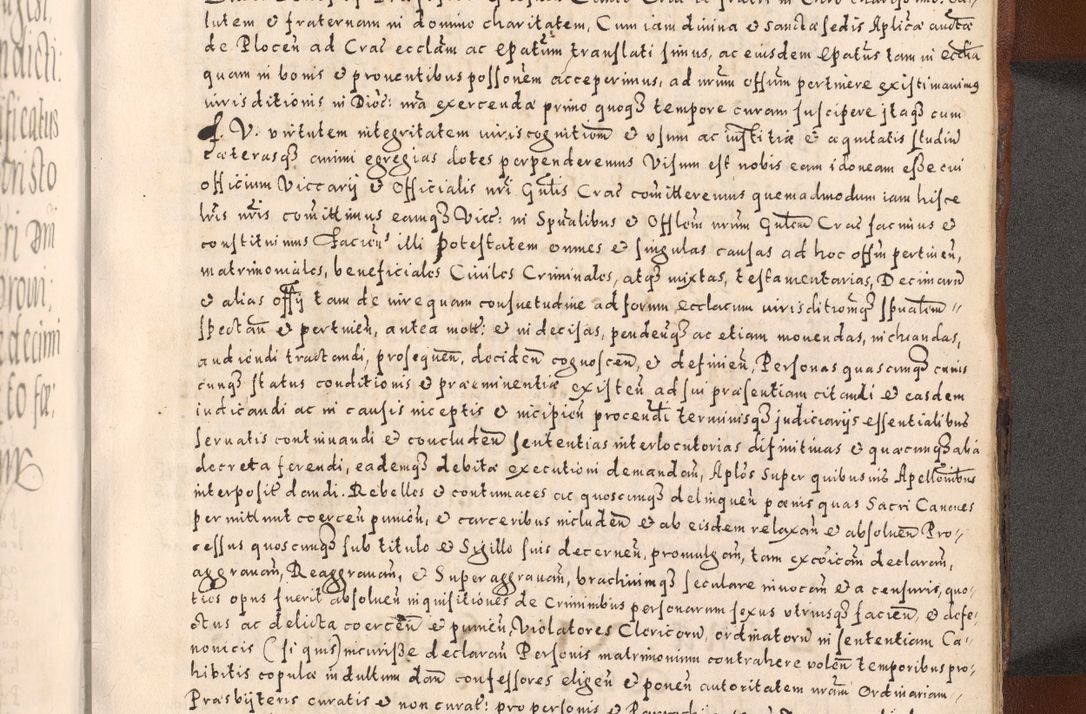 lutem et fraternam in domino charitatem, Cum iam divina et Sanctæ Sedis Aplicæ auctē
de Plocen̄ ad Crac̄ ecclām ac epatūm translati simus, ac eiusdem Epatus tam in ecclīa
quam in bonis et proventibus possonem acceperimus, ad nrūm offūm pertinere existimavimus
iurisditionis in Dioc̄: nrā exercenda primo quoqȝ tempore curam suscipere itaqȝ cum
F. V. virtutem integritatem iuriscognitionē et usum ac iustitiæ et æquitatis studiū
cæterasqȝ animi egregias dotes perpenderemus Visum est nobis eam idoneam esse cui
officium Viccarij et Officialis nrī Gnlīs Crac̄ com̄itteremus quemadmodum iam hisce
lrīs nrīs com̄ittimus eamqȝ Vicc̄: in Spūalibus et Offlēm nrūm Gnlēm Crac̄ facimus et
constituimus Facien̄s illi potestatem omnes et singulas causas ad hoc offūm pertinen̄,
matrimoniales, beneficiales Civiles Criminales, atqȝ mixtas, testamentarias, Decimarū
et alias offij tam de iure quam consuetudine ad forum ecclarum iurisditionisqȝ spūalem
spectan̄ et pertinen̄, antea mott: et in decisas, pendenqȝ ac etiam movendas, inchoandas,
audiendi tractandi, prosequen̄, deciden̄ cognoscen̄, et definien̄, Personas quascunqȝ cuius
cunqȝ status conditionis et præeminentiæ existen̄ ad sui præsentiam citandi et easdem
iudicandi ac in causis inceptis et incipien̄ procendi terminisqȝ judiciarijs essentialibus
servatis continuandi et concluden̄ sententias interlocutorias difinitivas et quæcunqȝ alia
decreta ferendi, eademqȝ debitæ executioni demandan̄, Aplōs super quibusvis Apellōnibus
interposit̄ dandi. Rebelles et contumaces ac quoscunqȝ delinquen̄ pœnis quas Sacri Canones
permittunt coercen̄ punien̄, et carceribus includen̄ et ab eisdem relaxan̄ et absolven̄ Pro-
cessus quoscunqȝ sub titulo et Sigillo suis decernen̄, promulgan̄, tam excōican̄ declaran̄,
aggravan̄, Reaggravan̄, et Superaggravan̄, brachiumqȝ seculare invocan̄ et a censuris, quo-
ties opus fuerit absolven̄ inquisitiones de Criminibus personarum sexus utriusqȝ facien̄, et defe-
ctus ac delicta coercen̄ et punien̄, Violatores Clericorū, ordinatorū in sententiam Ca-
nonicis (si quis) incurisse declaran̄ Personis matrimonium contrahere volen̄ temporibus pro-
hibitis copulæ indultum dan̄ confessores eligen̄ et ponen̄ autoritatem nrām Ordinariam
Præsbijteris curatis et non curat: pro personis et